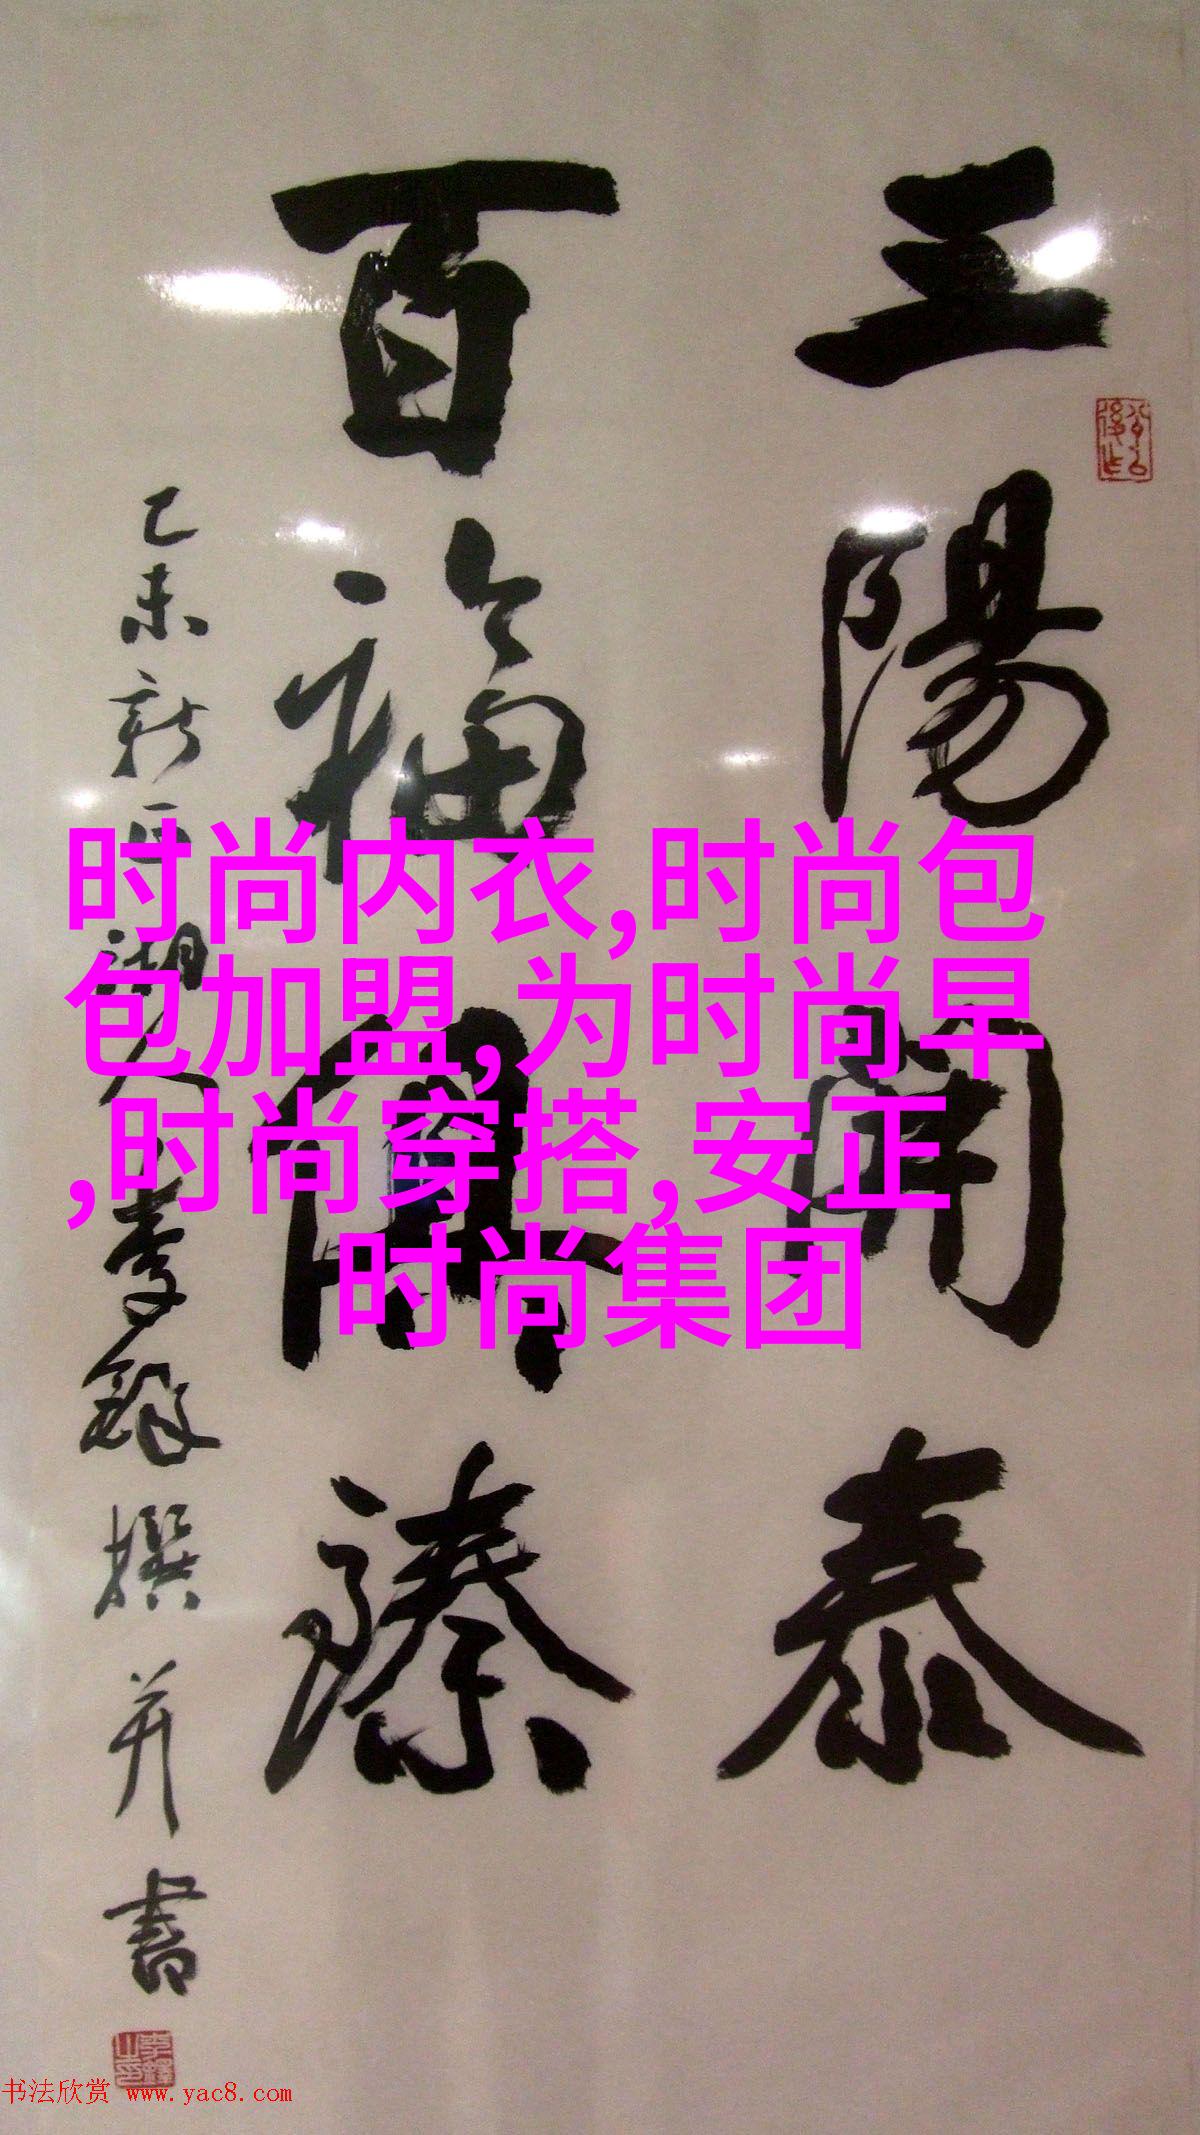 三陽開泰
百福俱臻
乙未新正湖人李鐸撰并書
时尚内衣,时尚包
包加盟,为时尚早
,时尚穿搭,安正
时尚集团
书法欣赏 www.yac8.com